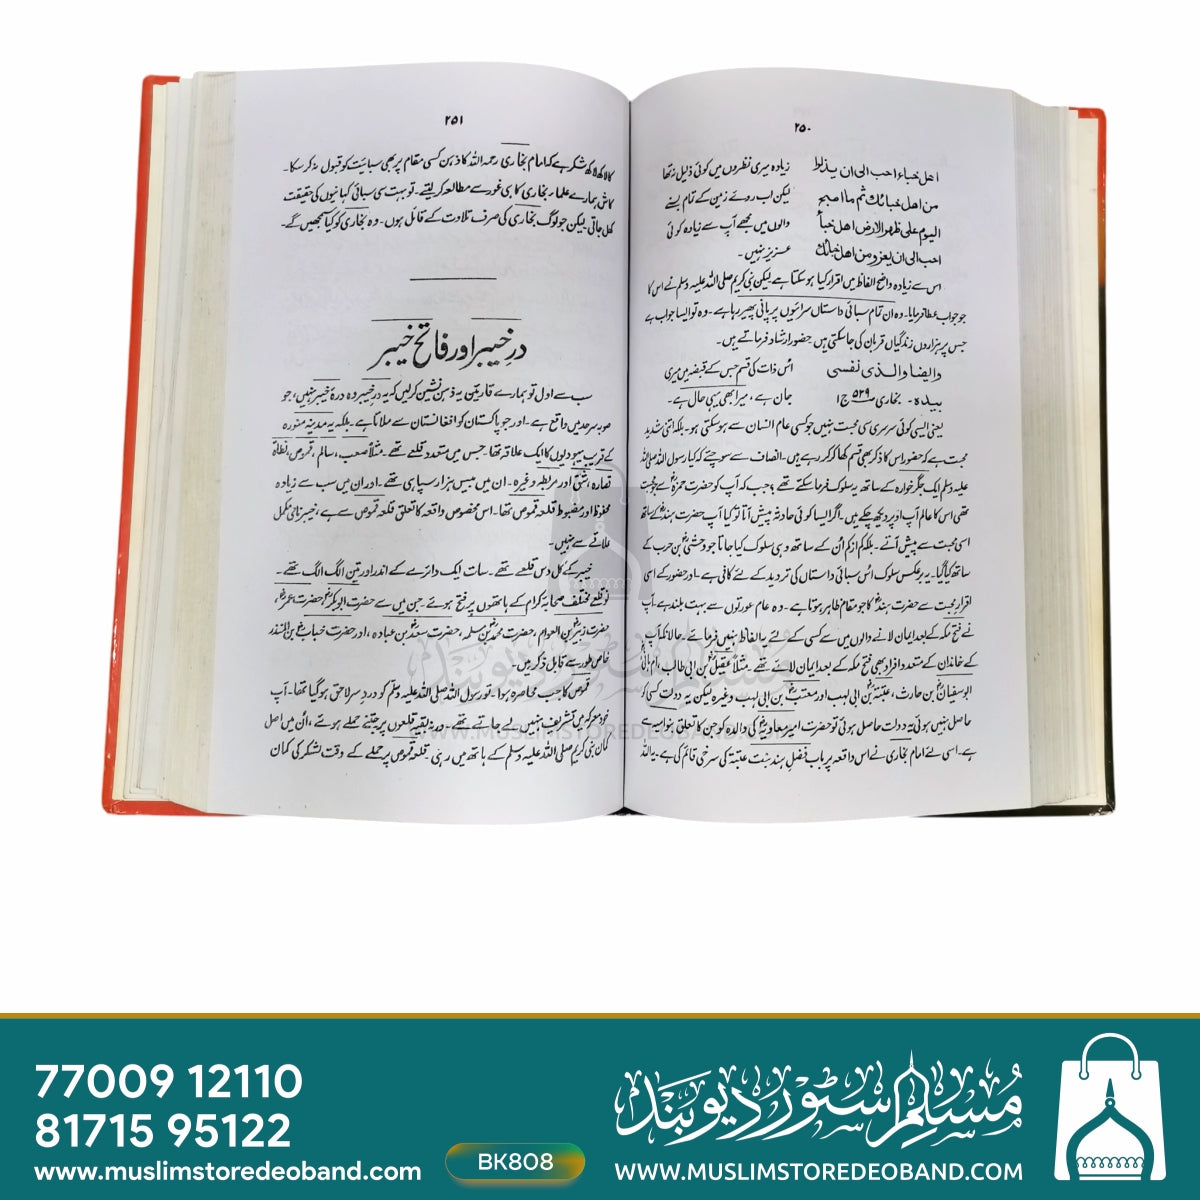 ۲۵۰
اهل خباء احب الى ان يذلوا
من اهل خبائك ثم ما اصبح
اليوم على ظهر الارض اهل خباء
احب الى ان يعزو من اهل خبائك
زیادہ میری نظروں میں کوئی ذلیل نہ تھا
لیکن اب روئے زمین کے تمام بسنے
والوں میں مجھے آپ سے زیادہ کوئی
عزیز نہیں۔
اس سے زیادہ واضح الفاظ میں اقرار کیا ہو سکتا ہے لیکن نبی کریم صلی اللہ علیہ وسلم نے اس کا
جو جواب عطا فرمایا۔ وہ ان تمام سبائی داستان سرائیوں پر پانی پھیر رہا ہے۔ وہ تو ایسا جواب ہے
جس پر ہزاروں زندگیاں قربان کی جا سکتی ہیں حضور ارشاد فرماتے ہیں۔
وايضا والذى نفسى
بيده۔ بخاری ۵۳۹ ج ۱
اس ذات کی قسم جس کے قبضہ میں میری
جان ہے، میرا بھی یہی حال ہے۔
یعنی ایسی کوئی سرسری سی محبت نہیں جو کسی عام انسان سے ہو سکتی ہو۔ بلکہ اتنی شدید
محبت ہے کہ حضور اس کا ذکر بھی قسم کھا کر کر رہے ہیں۔ انصاف سے سوچئے کہ کیا رسول اللہ صلی اللہ
علیہ وسلم ایک جگر خوارہ کے ساتھ یہ سلوک فرما سکتے تھے؟ جب کہ آپ کو حضرت حمزہؓ سے جو محبت
تھی اس کا عالم آپ اوپر دیکھ چکے ہیں۔ اگر ایسا کوئی حادثہ پیش آتا تو کیا آپ حضرت ہندؓ کے ساتھ
اسی محبت سے پیش آتے۔ بلکہ کم از کم ان کے ساتھ وہی سلوک کیا جاتا جو وحشیؓ بن حرب کے
ساتھ کیا گیا۔ یہ برعکس سلوک اس سبائی داستان کی تردید کے لئے کافی ہے۔ اور حضور کے اسی
اقرار محبت سے حضرت ہندؓ کا جو مقام ظاہر ہوتا ہے۔ وہ عام عورتوں سے بہت بلند ہے۔ آپ
نے فتح مکہ کے بعد ایمان لانے والوں میں سے کسی کے لئے یہ الفاظ نہیں فرمائے۔ حالانکہ آپ
کے خاندان کے متعدد افراد بھی فتح مکہ کے بعد ایمان لائے تھے۔ مثلاً عقیلؓ بن ابی طالب، ام ہانی
ابو سفیانؓ بن حارث، عتبہؓ بن ابی لہب اور معتبؓ بن ابی لہب وغیرہ لیکن یہ دولت کسی کو
حاصل نہیں ہوئی یہ دولت حاصل ہوئی تو حضرت امیر معاویہؓ کی والدہ کو جن کا تعلق بنو امیہ سے
ہے۔ اسی لئے امام بخاری نے اس واقعہ پر باب فضل ہند بنت عتبہ کی سرخی قائم کی ہے۔ یہ اللہ
۲۵۱
کا لاکھ لاکھ شکر ہے کہ امام بخاری رحمہ اللہ کا ذہن کسی مقام پر بھی سبائیت کو قبول نہ کر سکا۔
کاش ہمارے علماء بخاری کا ہی غور سے مطالعہ کر لیتے۔ تو بہت سی سبائی کہانیوں کی حقیقت
کھل جاتی۔ لیکن جو لوگ بخاری کی صرف تلاوت کے قائل ہوں۔ وہ بخاری کو کیا سمجھیں گے۔
در خیبر اور فاتح خیبر
سب سے اول تو ہمارے قارئین یہ ذہن نشین کر لیں کہ یہ در خیبر وہ درہ خیبر نہیں، جو
صوبہ سرحد میں واقع ہے۔ اور جو پاکستان کو افغانستان سے ملاتا ہے۔ بلکہ یہ مدینہ منورہ
کے قریب یہودیوں کا ایک علاقہ تھا۔ جس میں متعدد قلعے تھے۔ مثلاً صعب، سالم، قموص، نطاۃ
نصارہ، شق اور مربطہ وغیرہ۔ ان میں بیس ہزار سپاہی تھے۔ اور ان میں سب سے زیادہ
محفوظ اور مضبوط قلعہ قموص تھا۔ اس مخصوص واقعہ کا تعلق قلعہ قموص سے ہے، خیبر نامی مکمل
علاقے سے نہیں۔
خیبر کے کل دس قلعے تھے۔ سات ایک دائرے کے اندر اور تین الگ الگ تھے۔
نو قلعے مختلف صحابہ کرام کے ہاتھوں پر فتح ہوئے جن میں سے حضرت ابوبکرؓ، حضرت عمرؓ،
حضرت زبیرؓ بن العوام، حضرت محمدؓ بن مسلمہ، حضرت سعدؓ بن عبادہ، اور حضرت خبابؓ بن المنذر
خاص طور سے قابل ذکر ہیں۔
قموص کا جب محاصرہ ہوا۔ تو رسول اللہ صلی اللہ علیہ وسلم کو درد سر لاحق ہو گیا تھا۔ آپ
خود معرکہ میں تشریف نہیں لے جاتے تھے۔ ورنہ بقیہ قلعوں پر جتنے حملے ہوئے، ان میں اصل
کمان نبی کریم صلی اللہ علیہ وسلم کے ہاتھ میں رہی۔ قلعہ قموص پر حملے کے وقت لشکر کی کمان
مسلم سٹور دیوبند
WWW.MUSLIMSTOREDEOBAND.COM
77009 12110
81715 95122
www.muslimstoredeoband.com
BK808
مسلم سٹور دیوبند
WWW.MUSLIMSTOREDEOBAND.COM